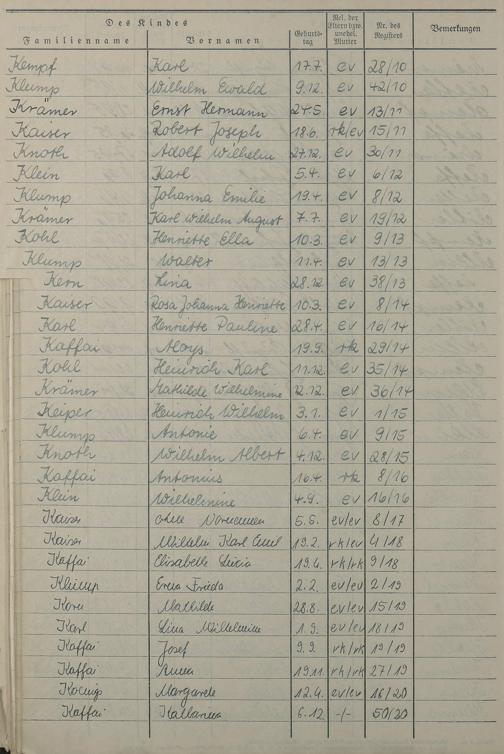 Des Kindes
Familienname Vornamen Geburts-tag Rel. der Eltern bzw. unehel. Mutter Nr. des Registers Bemerkungen
Kempf Karl 17.7. ev 28/10
Klump Wilhelm Ewald 9.12. ev 42/10
Krämer Ernst Hermann 24.5. ev 13/11
Kaiser Robert Joseph 18.6. rk/ev 15/11
Knoth Adolf Wilhelm 27.12. ev 30/11
Klein Karl 5.4. ev 6/12
Klump Johanna Emilie 19.4. ev 8/12
Krämer Karl Wilhelm August 7.7. ev 19/12
Kohl Henriette Ella 10.3. ev 9/13
Klump Walter 11.4. ev 13/13
Kern Lina 28.12. ev 38/13
Kaiser Rosa Johanna Henriette 10.3. ev 8/14
Karl Henriette Pauline 28.4. ev 16/14
Kaffai Aloys 19.9. rk 29/14
Kohl Heinrich Karl 11.12. ev 35/14
Krämer Mathilde Wilhelmine 12.12. ev 36/14
Keiper Heinrich Wilhelm 3.1. ev 1/15
Klump Antonie 6.4. ev 9/15
Knoth Wilhelm Albert 4.12. ev 28/15
Kaffai Antonius 16.4. rk 8/16
Klein Wilhelmine 4.9. ev 16/16
Kaiser ohne Vornamen 5.6. ev/ev 8/17
Kaiser Wilhelm Karl Emil 19.2. rk/ev 4/18
Kaffai Elisabeth Lucia 19.6. rk/rk 9/18
Klump Erna Frieda 2.2. ev/ev 2/19
Kern Mathilde 28.8. ev/ev 15/19
Karl Lina Wilhelmine 1.9. ev/ev 18/19
Kaffai Josef 9.9. rk/rk 19/19
Kaffai Anna 19.11. rk/rk 27/19
Koenig Margarete 12.4. ev/ev 16/20
Kaffai Katharina 6.12. -/- 50/20